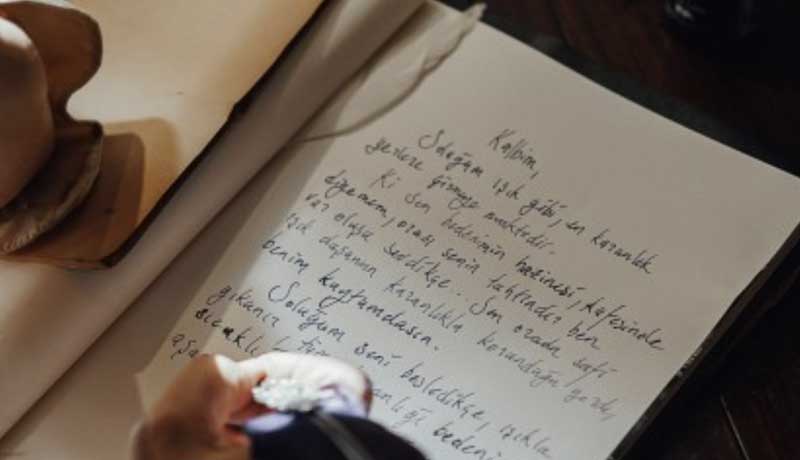 Kalbim,
Soluğum ışık gibi, en karanlık
yerlere girmeye muktedir.
Ki sen bedenimin hazinesi, kafesinde
diyemem, orası senin tahtındır ben
var oluşu seddikçe. Sen orada safi
ışık dışının karanlıkla korunduğu yerde,
benim kuytumdasın.
Soluğum seni besledikçe, ışıkla
yıkanır
sıcaklı